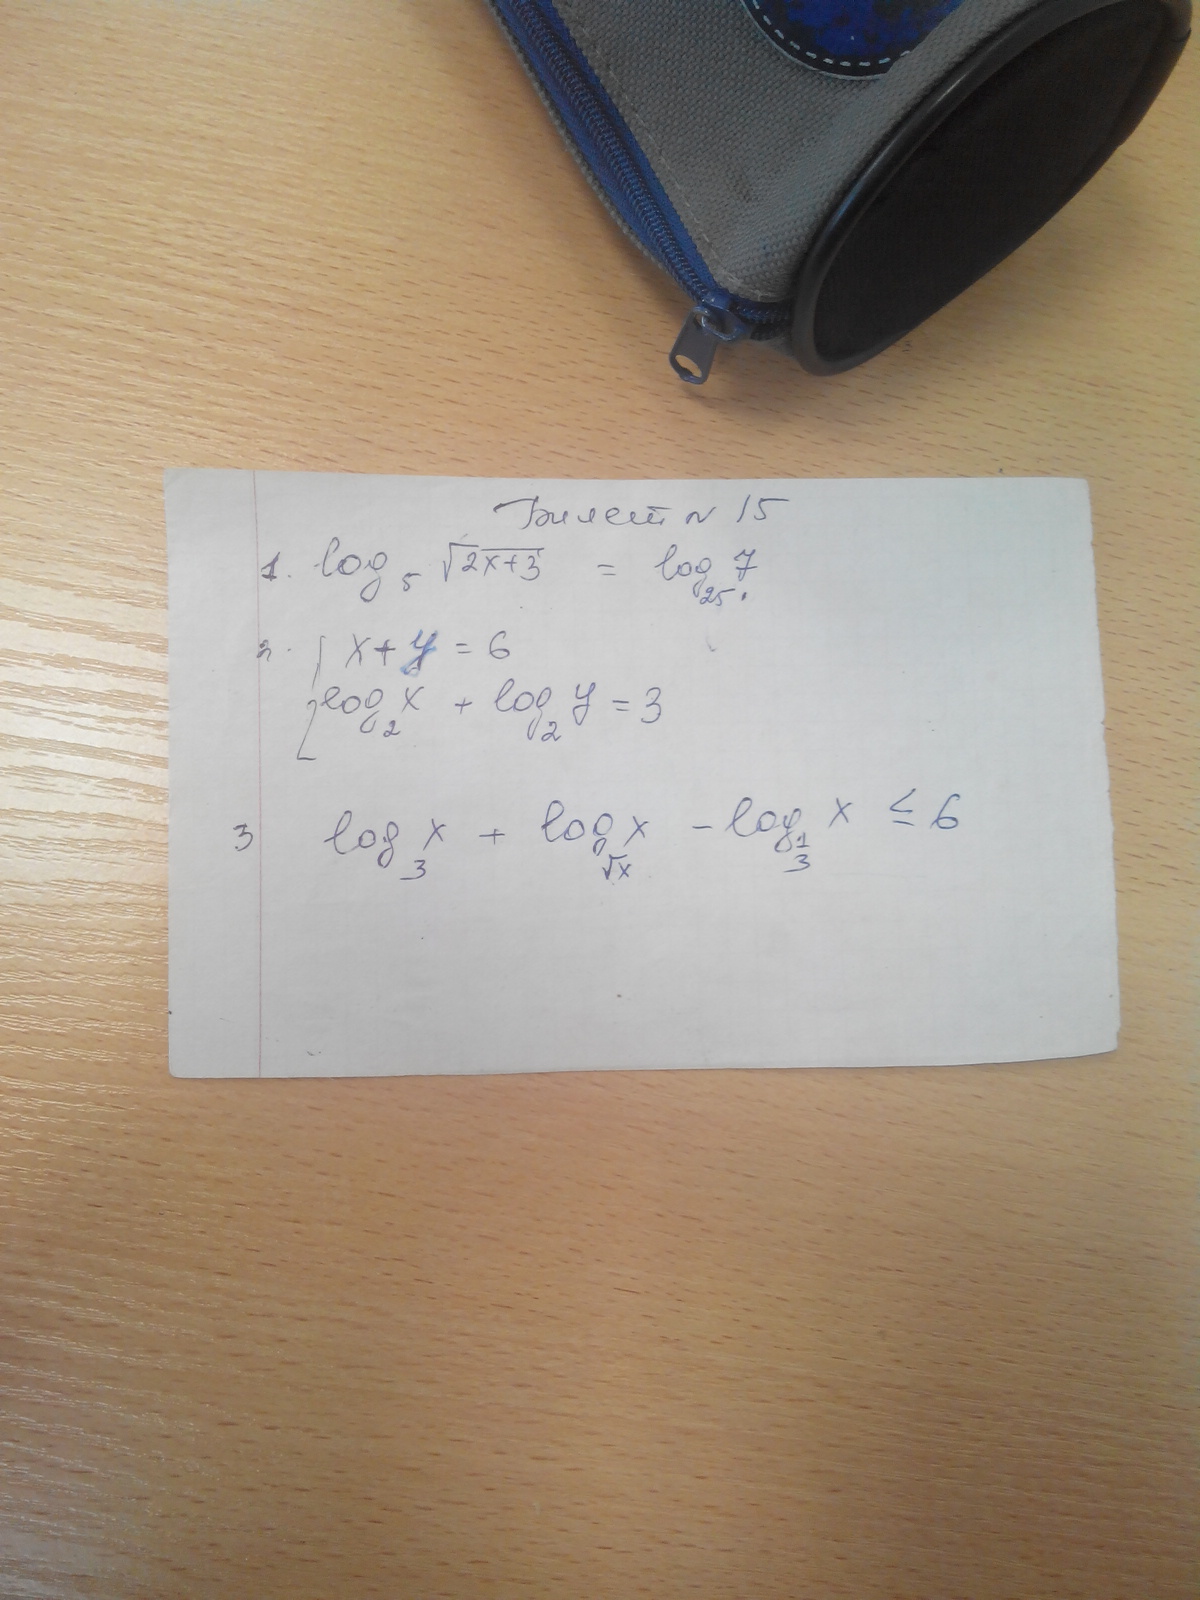 Билет № 15
1. log₅ √(2x+3) = log₂₅ 7
2. { x + y = 6
log₂ x + log₂ y = 3
3 log₃ x + log_√x x - log_1/3 x ≤ 6